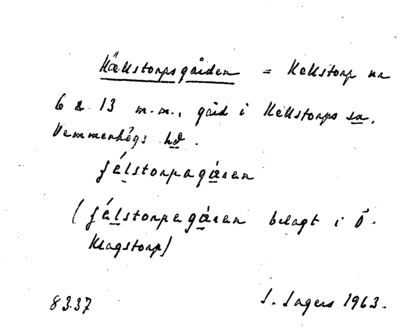 Källstorpsgården = Källstorp nr
6 a 13 m.m., gård i Källstorps sn,
Vemmenhögs hd.
fálstorpagáren
(fálstorpagáren belagt i Ö.
Klagstorp)
8337 I. Ingers 1963.